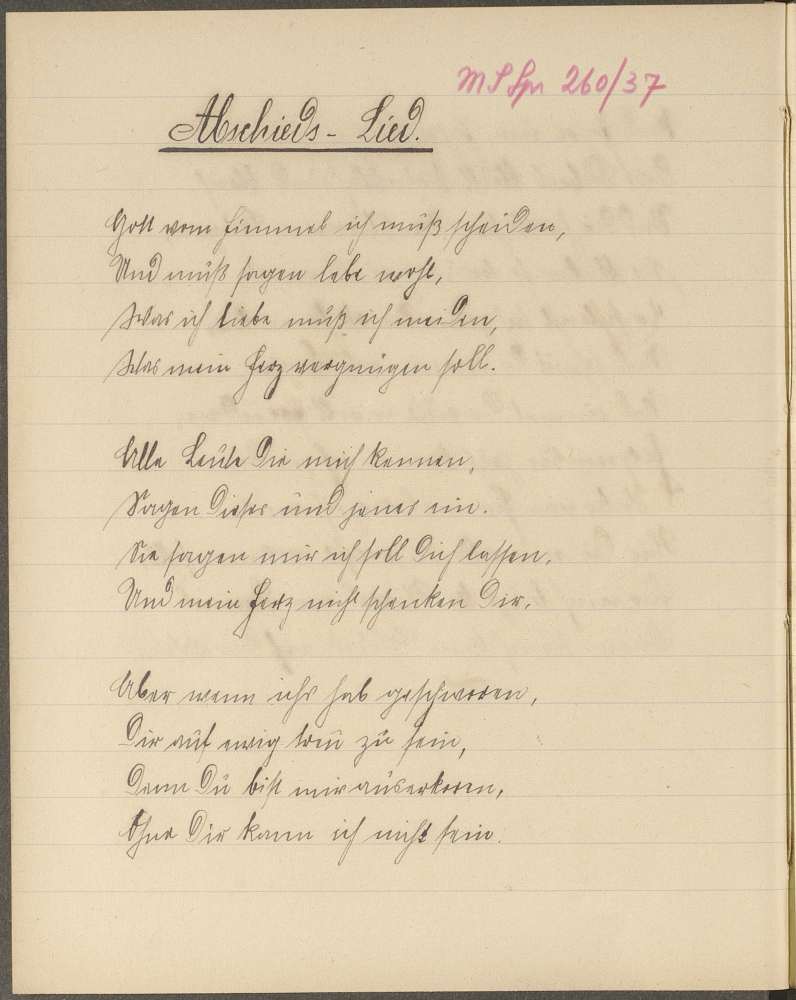 MS Spr 260/37
Abschieds-Lied.
Gott vom Himmel ich muß scheiden,
Und muß sagen lebe wohl,
Was ich liebe muß ich meiden,
Was mein Herz vergnügen soll.
Alle Leute die mich kennen,
Sagen dieses und jenes ein.
Sie sagen mir ich soll dich lassen,
Und mein Herz nicht schenken Dir.
Aber wenn ichs hab geschworen,
Dir auf ewig treu zu sein,
Denn Du bist mir auserkoren,
Ohne Dir kann ich nicht sein.